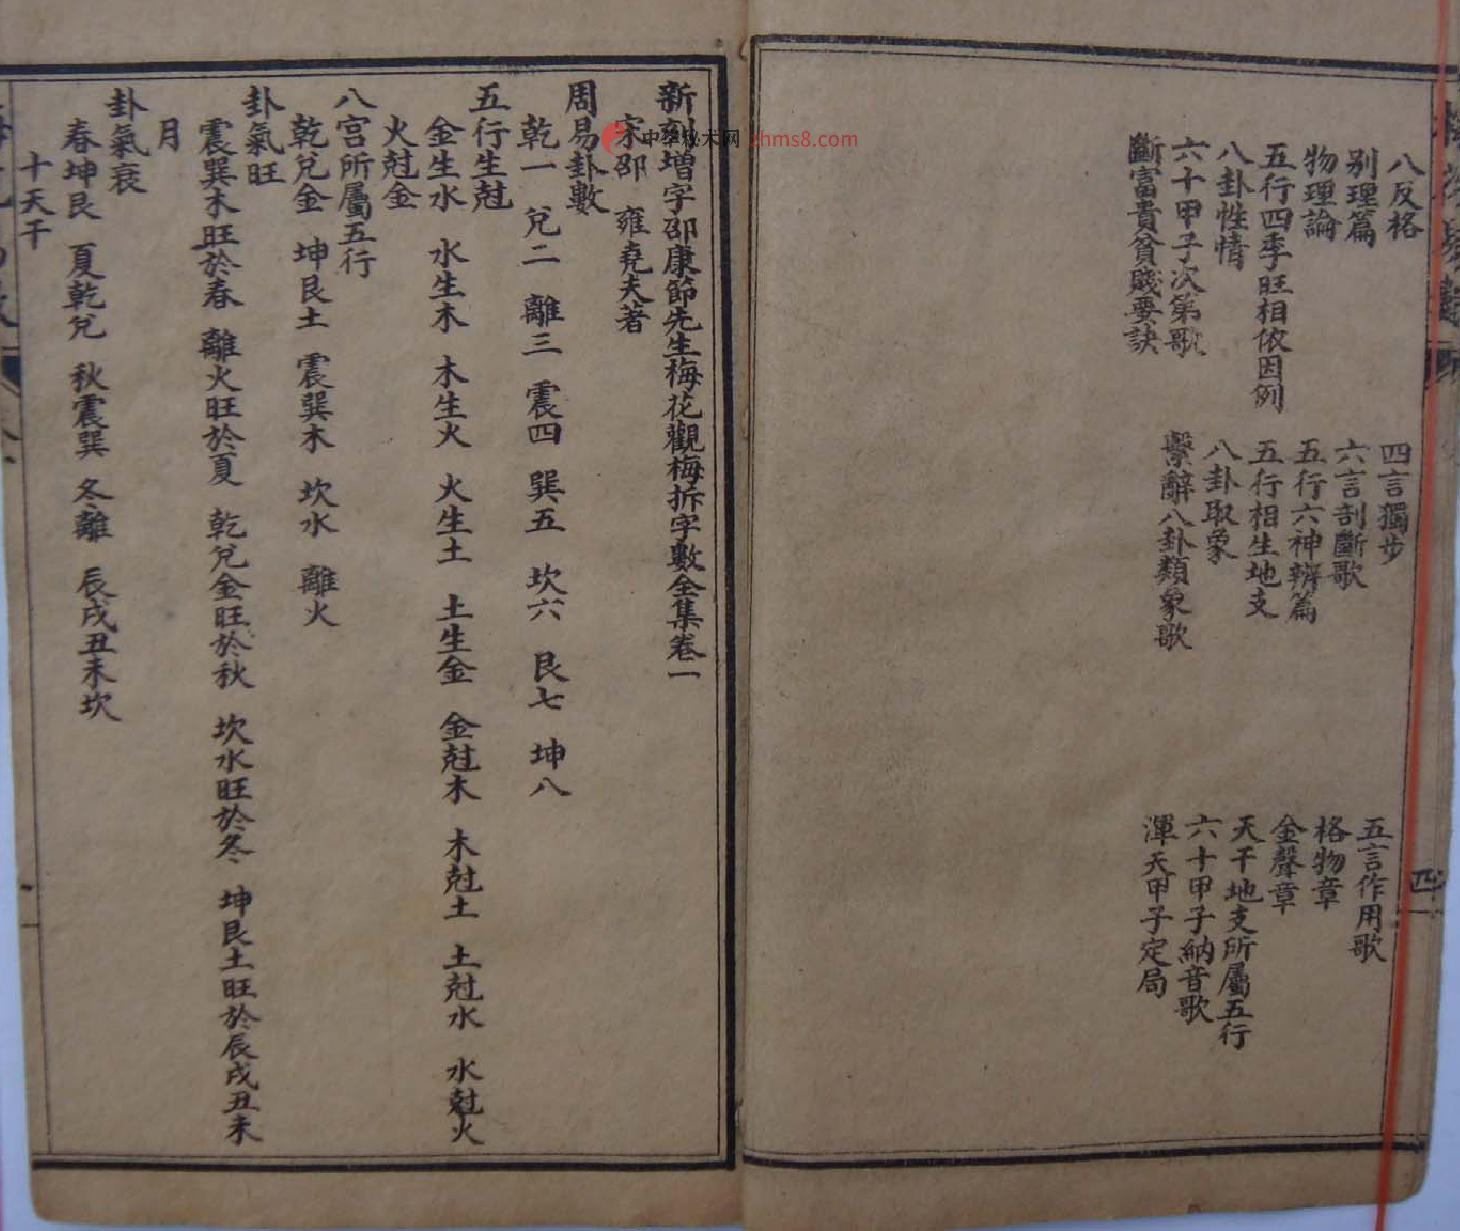 八反格
四言獨步
五言作用歌
别理篇
六言剖斷歌
格物章
物理論
五行六神辨篇
金聲章
五行四季旺相依因例
五行相生地支
天干地支所屬五行
八卦性情
八卦取象
六十甲子納音歌
六十甲子次第歌
繫辭八卦類象歌
渾天甲子定局
斷富貴貧賤要訣
四
新刻增字邵康節先生梅花觀梅拆字數全集卷一
宋邵 雍堯夫著
周易卦數
乾一 兌二 離三 震四 巽五 坎六 艮七 坤八
五行生尅
金生水 水生木 木生火 火生土 土生金 金尅木 木尅土 土尅水 水尅火
火尅金
八宮所屬五行
乾兌金 坤艮土 震巽木 坎水 離火
卦氣旺
震巽木旺於春 離火旺於夏 乾兌金旺於秋 坎水旺於冬 坤艮土旺於辰戌丑未
月
卦氣衰
春坤艮 夏乾兌 秋震巽 冬離 辰戌丑未坎
十天干
中华秘术网 zhms8.com